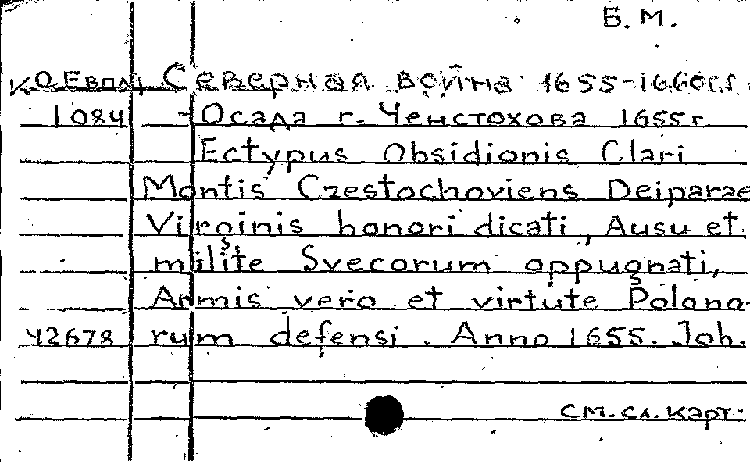 Б. М.
КОЕвол Северная война 1655-1660гг.
1084 - Осада г. Ченстохова 1655г
Ectypus Obsidionis Clari
Montis Czestochoviens Deiparae
Virginis honori dicati, Ausu et
milite Svecorum oppugnati,
Armis vero et virtute Polono-
42678 rum defensi. Anno 1655. Joh.
см. сл. карт.